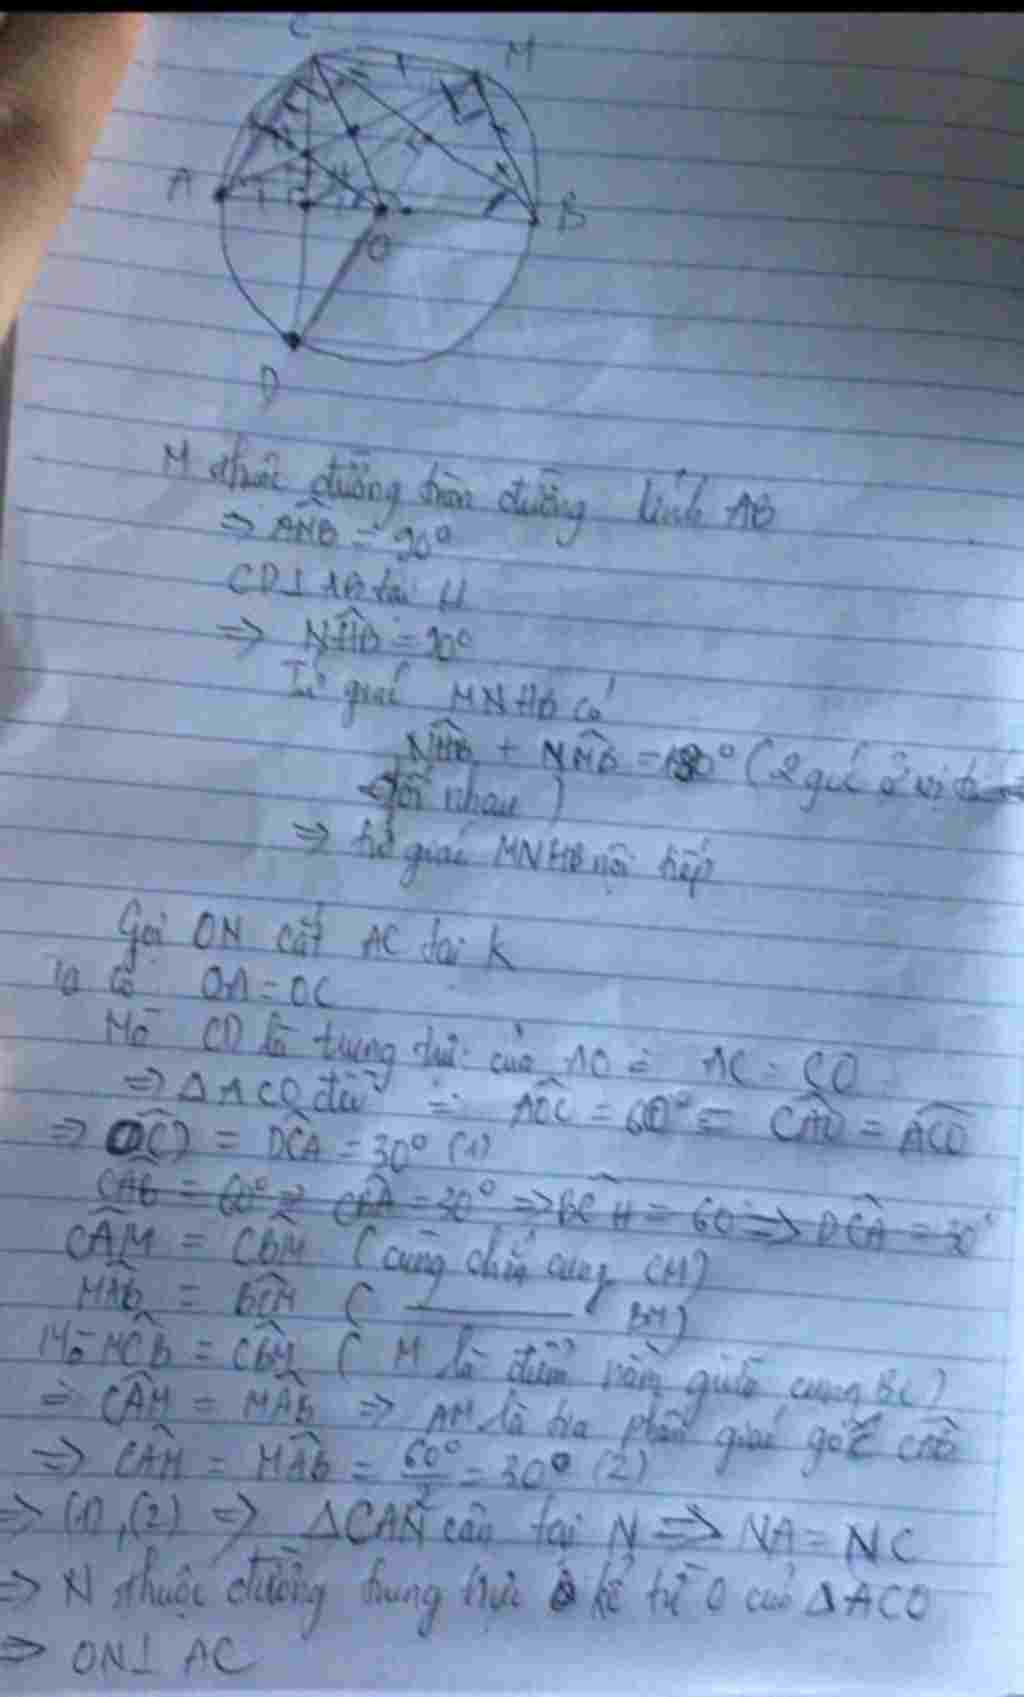 C
M
A
B
O
D
M thuộc đường tròn đường kính AB
⇒ AM̂B = 90°
CD⊥AB tại H
⇒ NĤB = 90°
Tứ giác MNHB có
NĤB + NM̂B = 180° (2 góc ở vị trí
đối nhau)
⇒ tứ giác MNHB nội tiếp
Gọi ON cắt AC tại K
Ta có OA = OC
Mà CD là trung trực của AO ⇒ AC = CO
⇒ ΔACO đều ⇒ AÔC = 60° = CÂO = AĈO
⇒ OĈD = DĈA = 30° (1)
CÂB = 60° ⇒ CB̂A = 30° ⇒ BĈH = 60 ⇒ DĈA = 30°
CÂM = CB̂M (cùng chắn cung CM)
MÂB = BĈM ( ——— BM)
Mà MĈB = CB̂M ( M là điểm nằm giữa cung BC)
⇒ CÂM = MÂB ⇒ AM là tia phân giác góc CÂB
⇒ CÂM = MÂB = 60°/2 = 30° (2)
⇒ (1), (2) ⇒ ΔCAN cân tại N ⇒ NA = NC
⇒ N thuộc đường trung trực kẻ từ O của ΔACO
⇒ ON⊥AC